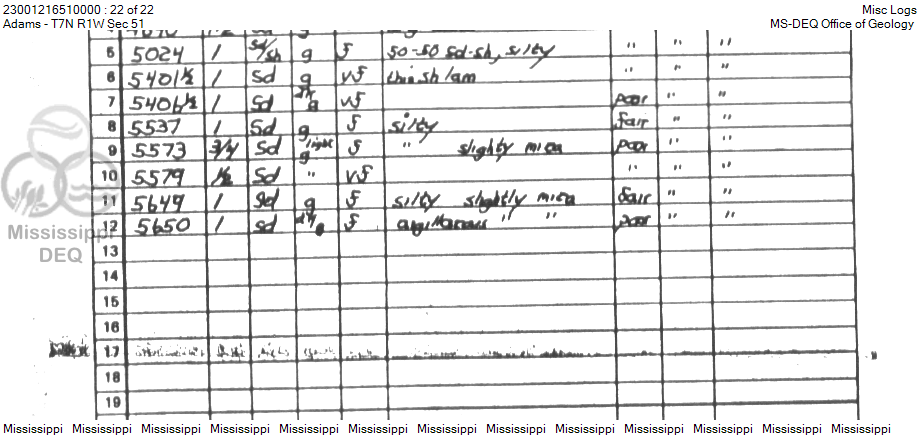 23001216510000 : 22 of 22 Misc Logs
Adams - T7N R1W Sec 51 MS-DEQ Office of Geology
5 5024 1 sd/sh g f 50-50 sd-sh, silty " " "
6 5401½ 1 Sd g vf thin sh lam " " "
7 5406½ 1 Sd dk g vf poor " "
8 5537 1 Sd g f silty fair " "
9 5573 3/4 Sd light g f " slightly mica poor " "
10 5579 1/2 Sd " vf " " "
11 5649 1 Sd g f silty slightly mica fair " "
12 5650 1 sd dk g f argillaceous " " poor " "
Mississippi
DEQ
13
14
15
16
17
18
19
Mississippi Mississippi Mississippi Mississippi Mississippi Mississippi Mississippi Mississippi Mississippi Mississippi Mississippi Mississippi Mississippi